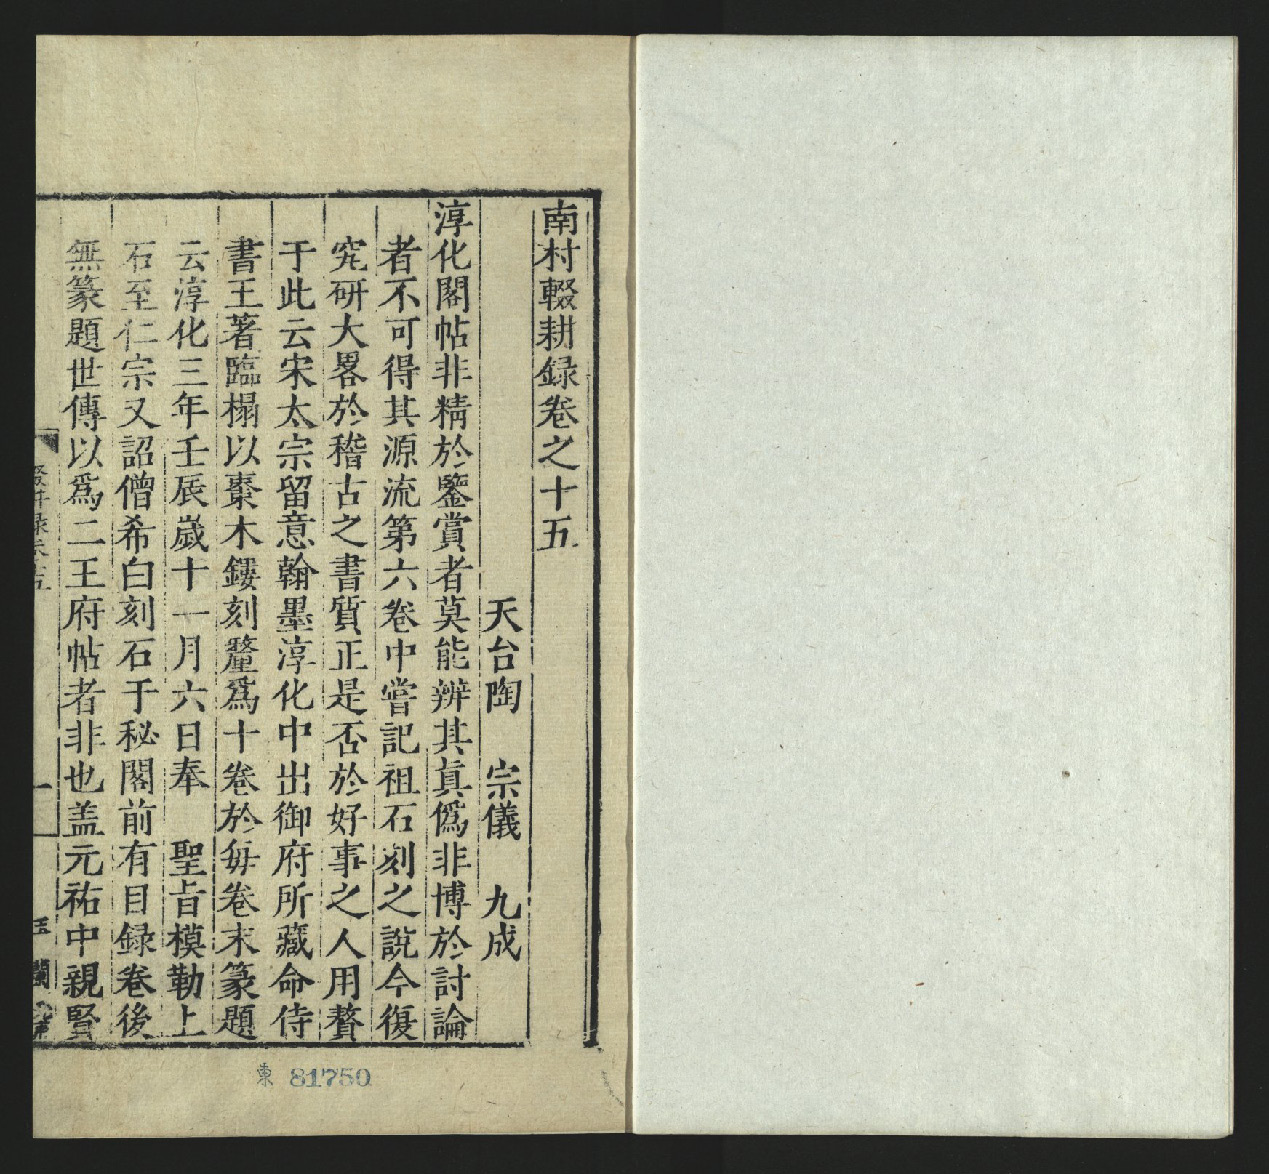 南村輟耕録卷之十五
天台陶　宗儀　九成
淳化閣帖非精於鑒賞者莫能辨其真僞非博於討論
者不可得其源流第六卷中嘗記祖石刻之說今復
究研大畧於稽古之書質正是否於好事之人用贅
于此云宋太宗留意翰墨淳化中出御府所藏命侍
書王著臨榻以棗木鏤刻釐爲十卷於每卷末篆題
云淳化三年壬辰歲十一月六日奉　聖旨模勒上
石至仁宗又詔僧希白刻石于秘閣前有目録卷後
無篆題世傳以爲二王府帖者非也盖元祐中親賢
一
東 81750